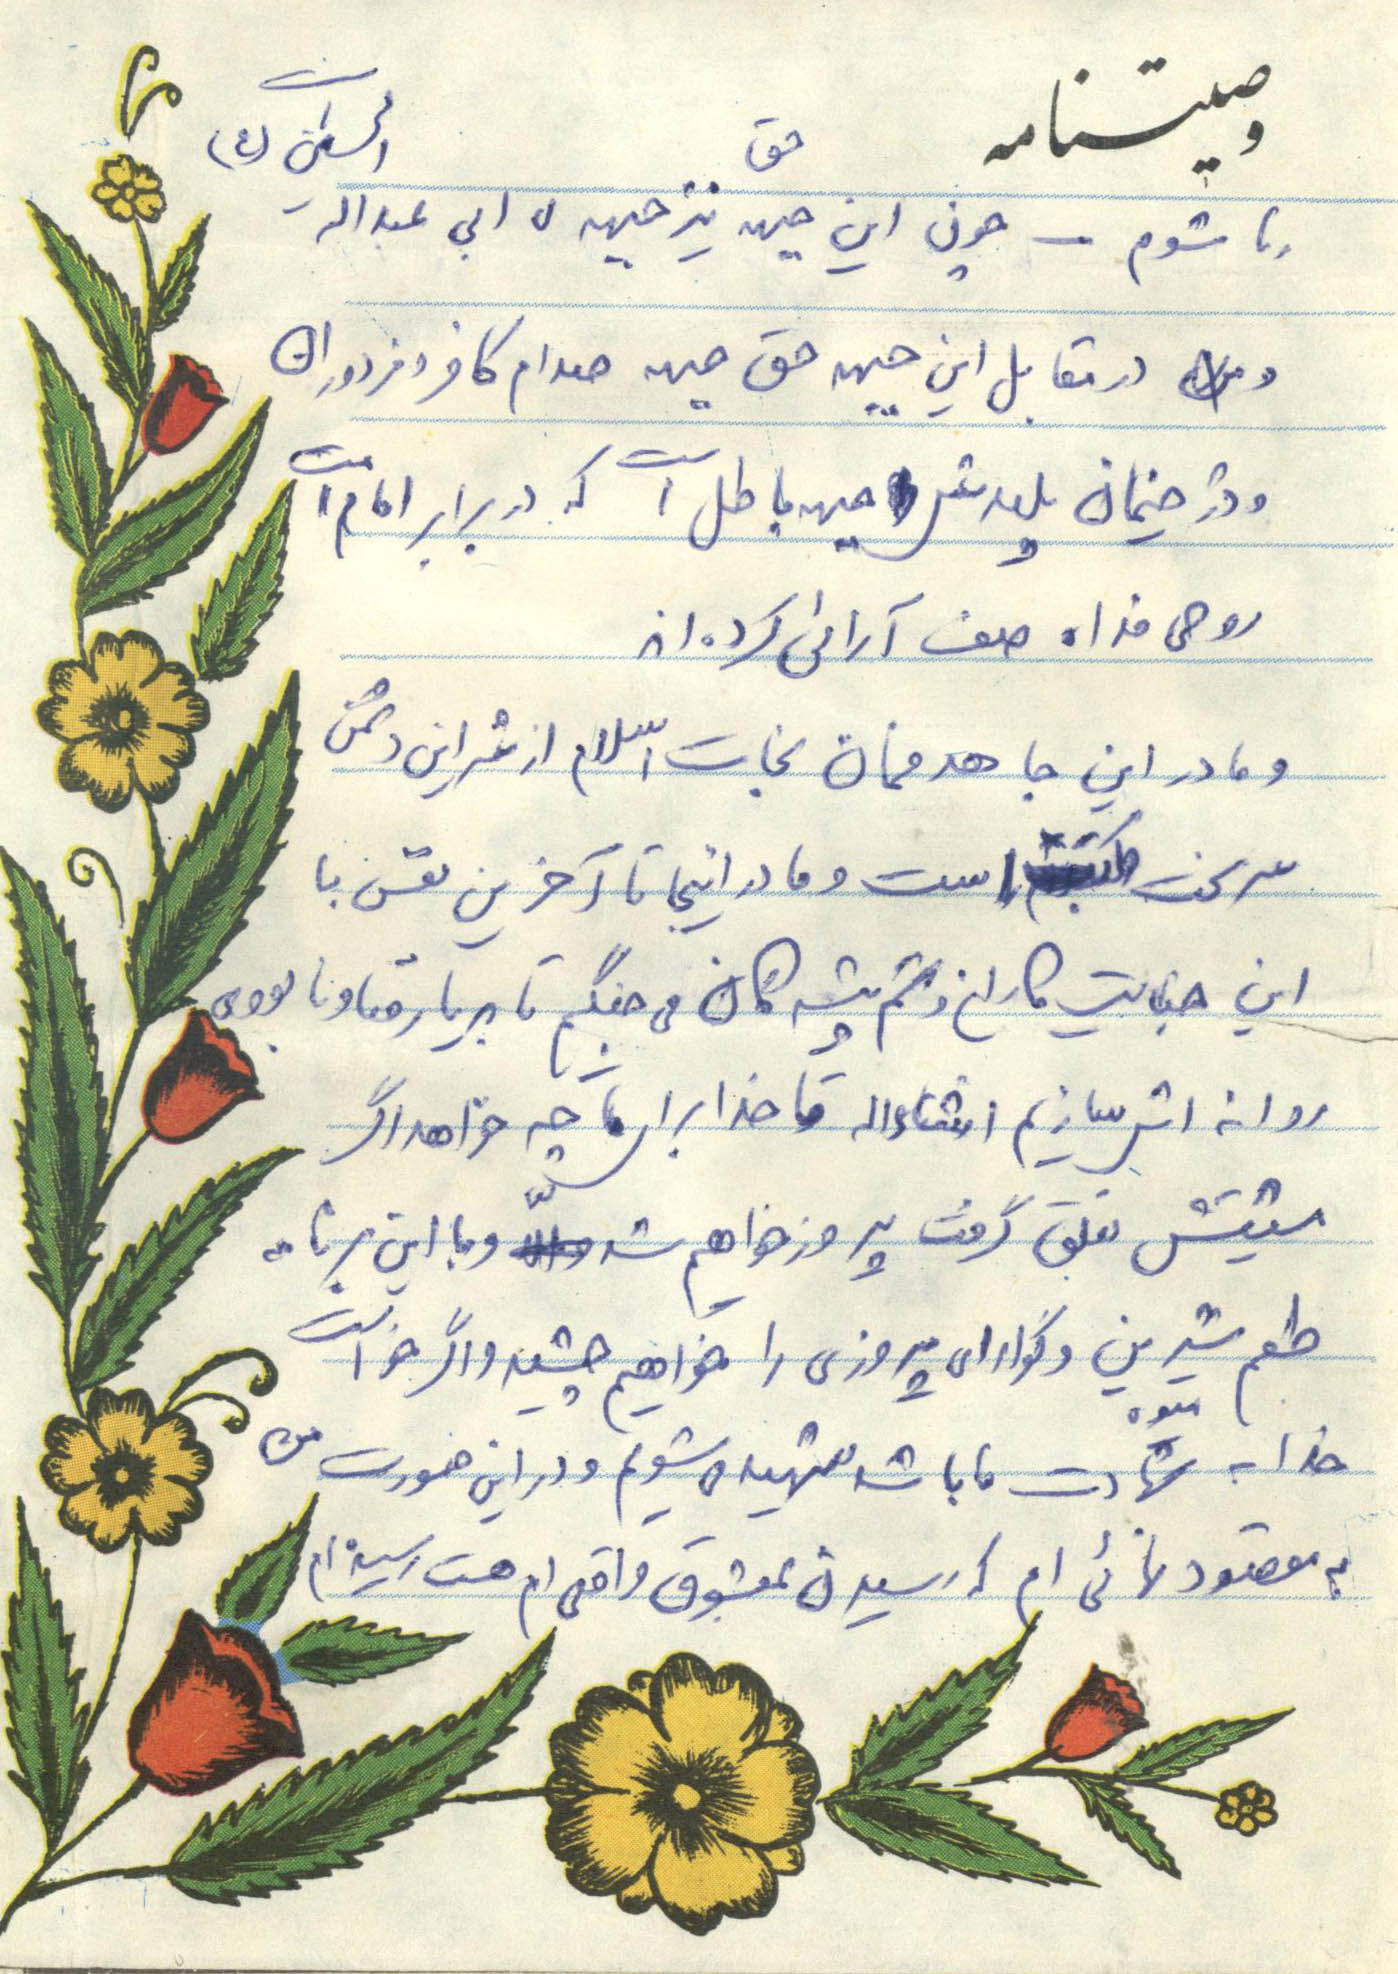 وصیتنامه
رها شوم – چون این جبهه نیز جبهه حق ابی عبداله الحسین (ع) است
و در مقابل این جبهه حق جبهه صدام کافر و مزدوران
و دژخیمان پلیدش جبهه باطل است که در برابر امام امت
روحی فداه صف آرائی کرده اند
و ما در این جا هدفمان نجات اسلام از شر این دشمن
سرسخت است و ما در اینجا تا آخرین نفس با
این جنایت کاران و ستم پیشه گان می جنگیم تا به دیار فنا و نابودی
روانه اش سازیم انشاءاله تا خدا برای ما چه خواهد اگر
مشیتش تعلق گرفت پیروز خواهیم شد و با این برنامه
طعم شیرین و گوارای پیروزی را خواهیم چشید و اگر خواست
خدا به شهادت ما باشد شهید می شویم و در این صورت من
به مقصود نهائی ام که رسیدن بمعشوق واقعی ام هست رسیده ام